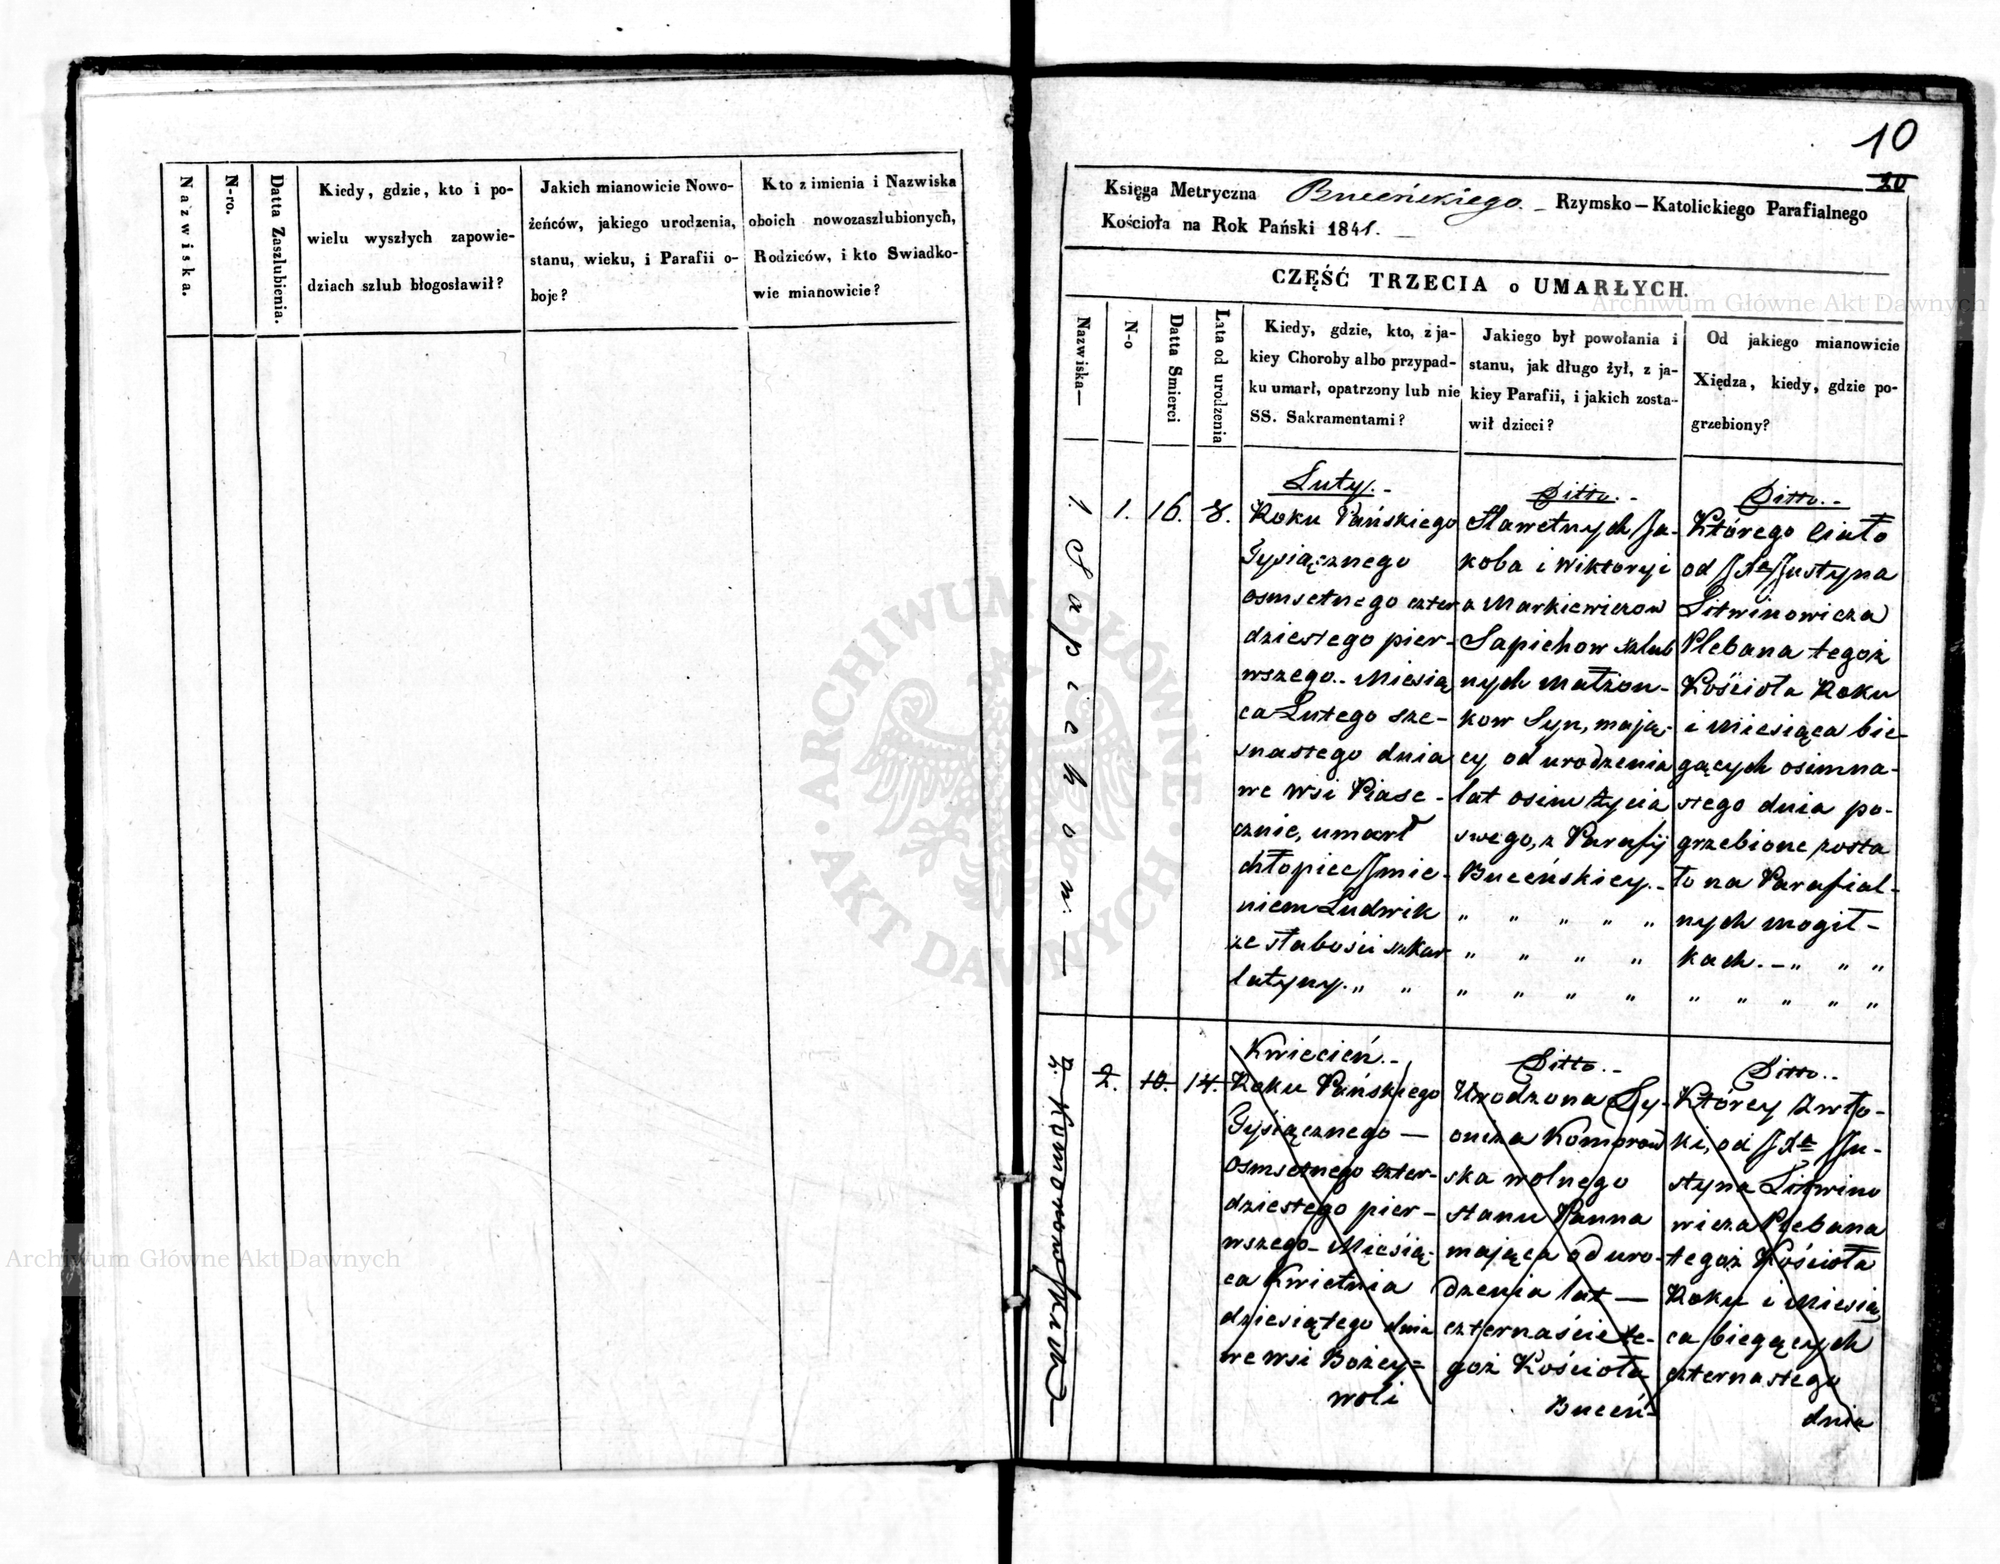 Nazwiska.
N-ro.
Datta Zaszlubienia.
Kiedy, gdzie, kto i po-
wielu wyszłych zapowie-
dziach szlub błogosławił?
Jakich mianowicie Nowo-
żeńców, jakiego urodzenia,
stanu, wieku, i Parafii o-
boje?
Kto z imienia i Nazwiska
oboich nowozaszlubionych,
Rodziców, i kto Swiadko-
wie mianowicie?
10
20
Księga Metryczna Buceńskiego. – Rzymsko–Katolickiego Parafialnego
Kościoła na Rok Pański 1841. –
CZĘŚĆ TRZECIA o UMARŁYCH.
Nazwiska—
N-o
Datta Smierci
Lata od urodzenia
Kiedy, gdzie, kto, z ja-
kiey Choroby albo przypad-
ku umarł, opatrzony lub nie
SS. Sakramentami?
Jakiego był powołania i
stanu, jak długo żył, z ja-
kiey Parafii, i jakich zosta-
wił dzieci?
Od jakiego mianowicie
Xiędza, kiedy, gdzie po-
grzebiony?
1. Sapiehow: —
1.
16.
8.
Luty. -
Roku Pańskiego
Tysiącznego
osmsetnego czter
dziestego pier-
wszego.- Miesią
ca Lutego sze-
snastego dnia
we wsi Piase-
cznie, umarł
chłopiec Jmie-
niem Ludwik
ze słabości szkar
latyny. „ „
Ditto. -
Sławetnych Ja-
koba i Wiktoryi
z Markiewiczow
Sapiehow szlub
nych małżon-
kow Syn, mają-
cy od urodzenia
lat osim życia
swego, z Parafij
Buceńskiey. -
„ „ „ „ „
„ „ „ „
„ „ „ „
Ditto. -
Którego Ciało
od JXa Justyna
Litwinowicza
Plebana tegoż
Kościoła Roku
i Miesiąca bie-
gących osimna-
stego dnia po-
grzebione zosta
ło na Parafial-
nych mogił-
kach. - „ „ „
„ „ „ „ „
2. Komorowska —
2.
10.
14.
Kwiecień. -
Roku Pańskiego
Tysiącznego —
osmsetnego czter-
dziestego pier-
wszego - Miesią-
ca Kwietnia
dziesiątego dnia
we wsi Bożey=
woli
Ditto. -
Urodzona Sy-
oncza Komorow
ska wolnego
stanu Panna
mająca od uro-
dzenia lat —
czternaście te-
goż Kościoła
Buceń-
Ditto. -
Którey zwło-
ki, od JXa Ju-
styna Litwino
wicza Plebana
tegoż Kościoła
Roku i Miesią
ca biegących
czternastego
dnia
Archiwum Główne Akt Dawnych
Archiwum Główne Akt Dawnych
ARCHIWUM GŁÓWNE · AKT DAWNYCH ·